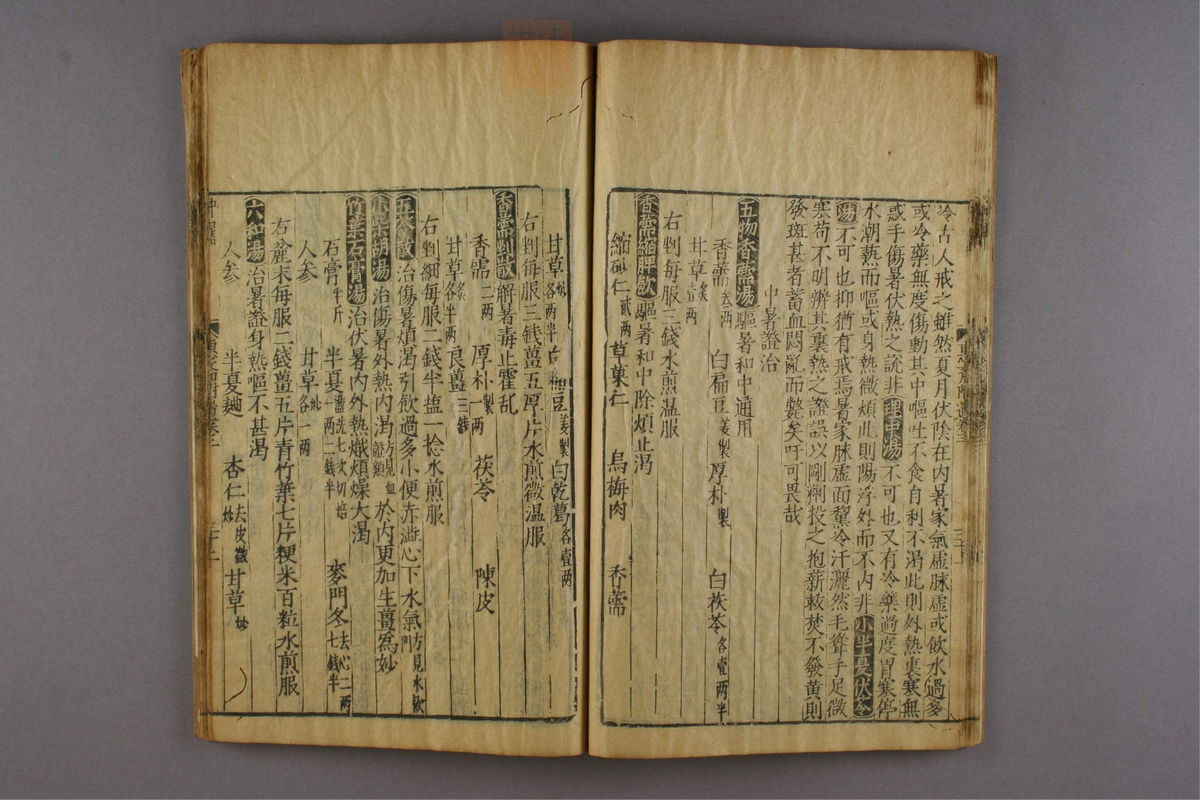 冷古人戒之雖然夏月伏陰在内暑家氣虛脉虛或飲水過多
或冷藥無度傷動其中嘔吐不食自利不渴此則外熱裏寒無
惑乎傷暑伏熱之說非理中湯不可也又有冷藥過度胃寒停
水潮熱而嘔或身熱微煩此則陽浮外而不内非小半夏茯苓
湯不可也抑猶有戒焉暑家脉虛面黧冷汗灑然毛聳手足微
寒苟不明辨其裏熱之證誤以剛劑投之抱薪救焚不發黄則
發斑甚者蓄血悶亂而斃矣吁可畏哉
中暑證治
五物香薷湯驅暑和中通用
香薷叁两 白扁豆姜製 厚朴製 白茯苓各壹两半
甘草炙壹两
右判每服三錢水煎温服
香薷縮脾飲驅暑和中除煩止渴
縮砂仁貳两 草菓仁 烏梅肉 香薷
甘草炒各两半 豆姜製 白乾葛各壹两
右判每服三錢薑五厚片水煎微温服
香薷判散解暑毒止霍乱
香薷二两 厚朴製一两 茯苓 陳皮
甘草炙各半两 良薑三錢
右判細每服二錢半塩一捻水煎服
五苓散治傷暑煩渴引飲過多小便赤澁心下水氣方見水飲門
小柴胡湯治傷暑外熱内渴方見血證類於内更加生薑為妙
竹葉石膏湯治伏暑内外熱熾煩燥大渴
石膏半斤 半夏盪洗七次切焙一两二錢半 麥門冬去心二两七錢半
人参 甘草炒各一两
右麄末每服二錢薑五片青竹葉七片粳米百粒水煎服
六和湯治暑證身熱嘔不甚渴
人参 半夏麯 杏仁去皮微炒 甘草炒